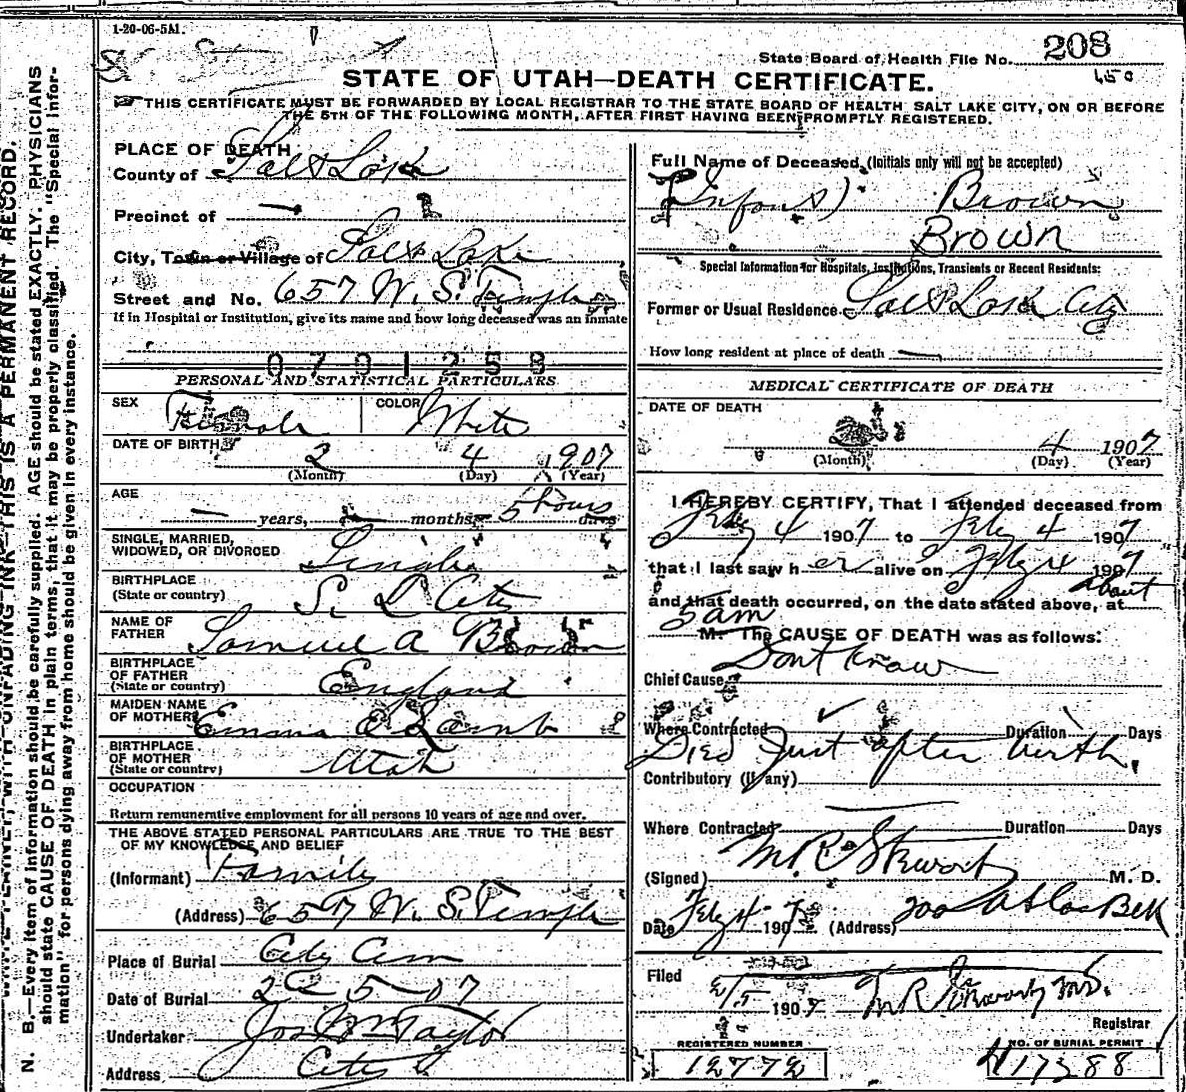 1-20-06-5M.
State Board of Health File No. 208
STATE OF UTAH—DEATH CERTIFICATE.
THIS CERTIFICATE MUST BE FORWARDED BY LOCAL REGISTRAR TO THE STATE BOARD OF HEALTH SALT LAKE CITY, ON OR BEFORE
THE 5TH OF THE FOLLOWING MONTH, AFTER FIRST HAVING BEEN PROMPTLY REGISTERED.
PLACE OF DEATH
County of Salt Lake
Precinct of
City, Town or Village of Salt Lake
Street and No. 657 W. S. Temple
If in Hospital or Institution, give its name and how long deceased was an inmate
0701258
PERSONAL AND STATISTICAL PARTICULARS
SEX Female COLOR White
DATE OF BIRTH 2 4 1907
(Month) (Day) (Year)
AGE — years, months 5 hours days
SINGLE, MARRIED,
WIDOWED, OR DIVORCED Single
BIRTHPLACE
(State or country) S. L. City
NAME OF
FATHER Samuel A Brown
BIRTHPLACE
OF FATHER
(State or country) England
MAIDEN NAME
OF MOTHER Emma E Lamb
BIRTHPLACE
OF MOTHER
(State or country) Utah
OCCUPATION
Return remunerative employment for all persons 10 years of age and over.
THE ABOVE STATED PERSONAL PARTICULARS ARE TRUE TO THE BEST
OF MY KNOWLEDGE AND BELIEF
(Informant) Family
(Address) 657 W. S. Temple
Place of Burial City Cem
Date of Burial 2 5 - 07
Undertaker Jos Wm Taylor
Address City
Full Name of Deceased, (Initials only will not be accepted)
(Infant) Brown
Brown
Special Information for Hospitals, Institutions, Transients or Recent Residents:
Former or Usual Residence Salt Lake City
How long resident at place of death
MEDICAL CERTIFICATE OF DEATH
DATE OF DEATH
4 1907
(Month) (Day) (Year)
I HEREBY CERTIFY, That I attended deceased from
Feby 4 1907 to Feby 4 1907
that I last saw her alive on Feby 4 1907
and that death occurred, on the date stated above, at about
5 am M. The CAUSE OF DEATH was as follows:
Chief Cause Dont Know
Where Contracted Duration Days
Died Just after birth.
Contributory (If any)
Where Contracted Duration Days
(Signed) M. R. Stewart M. D.
Date Feby 4 1907 (Address) 200 Atlas Blk
Filed 2/5 1907 M R Stewart M.D.
Registrar
REGISTERED NUMBER NO. OF BURIAL PERMIT
12772 H17388
N. B.—Every item of information should be carefully supplied. AGE should be stated EXACTLY. PHYSICIANS
should state CAUSE OF DEATH in plain terms, that it may be properly classified. The "Special Infor-
mation" for persons dying away from home should be given in every instance.